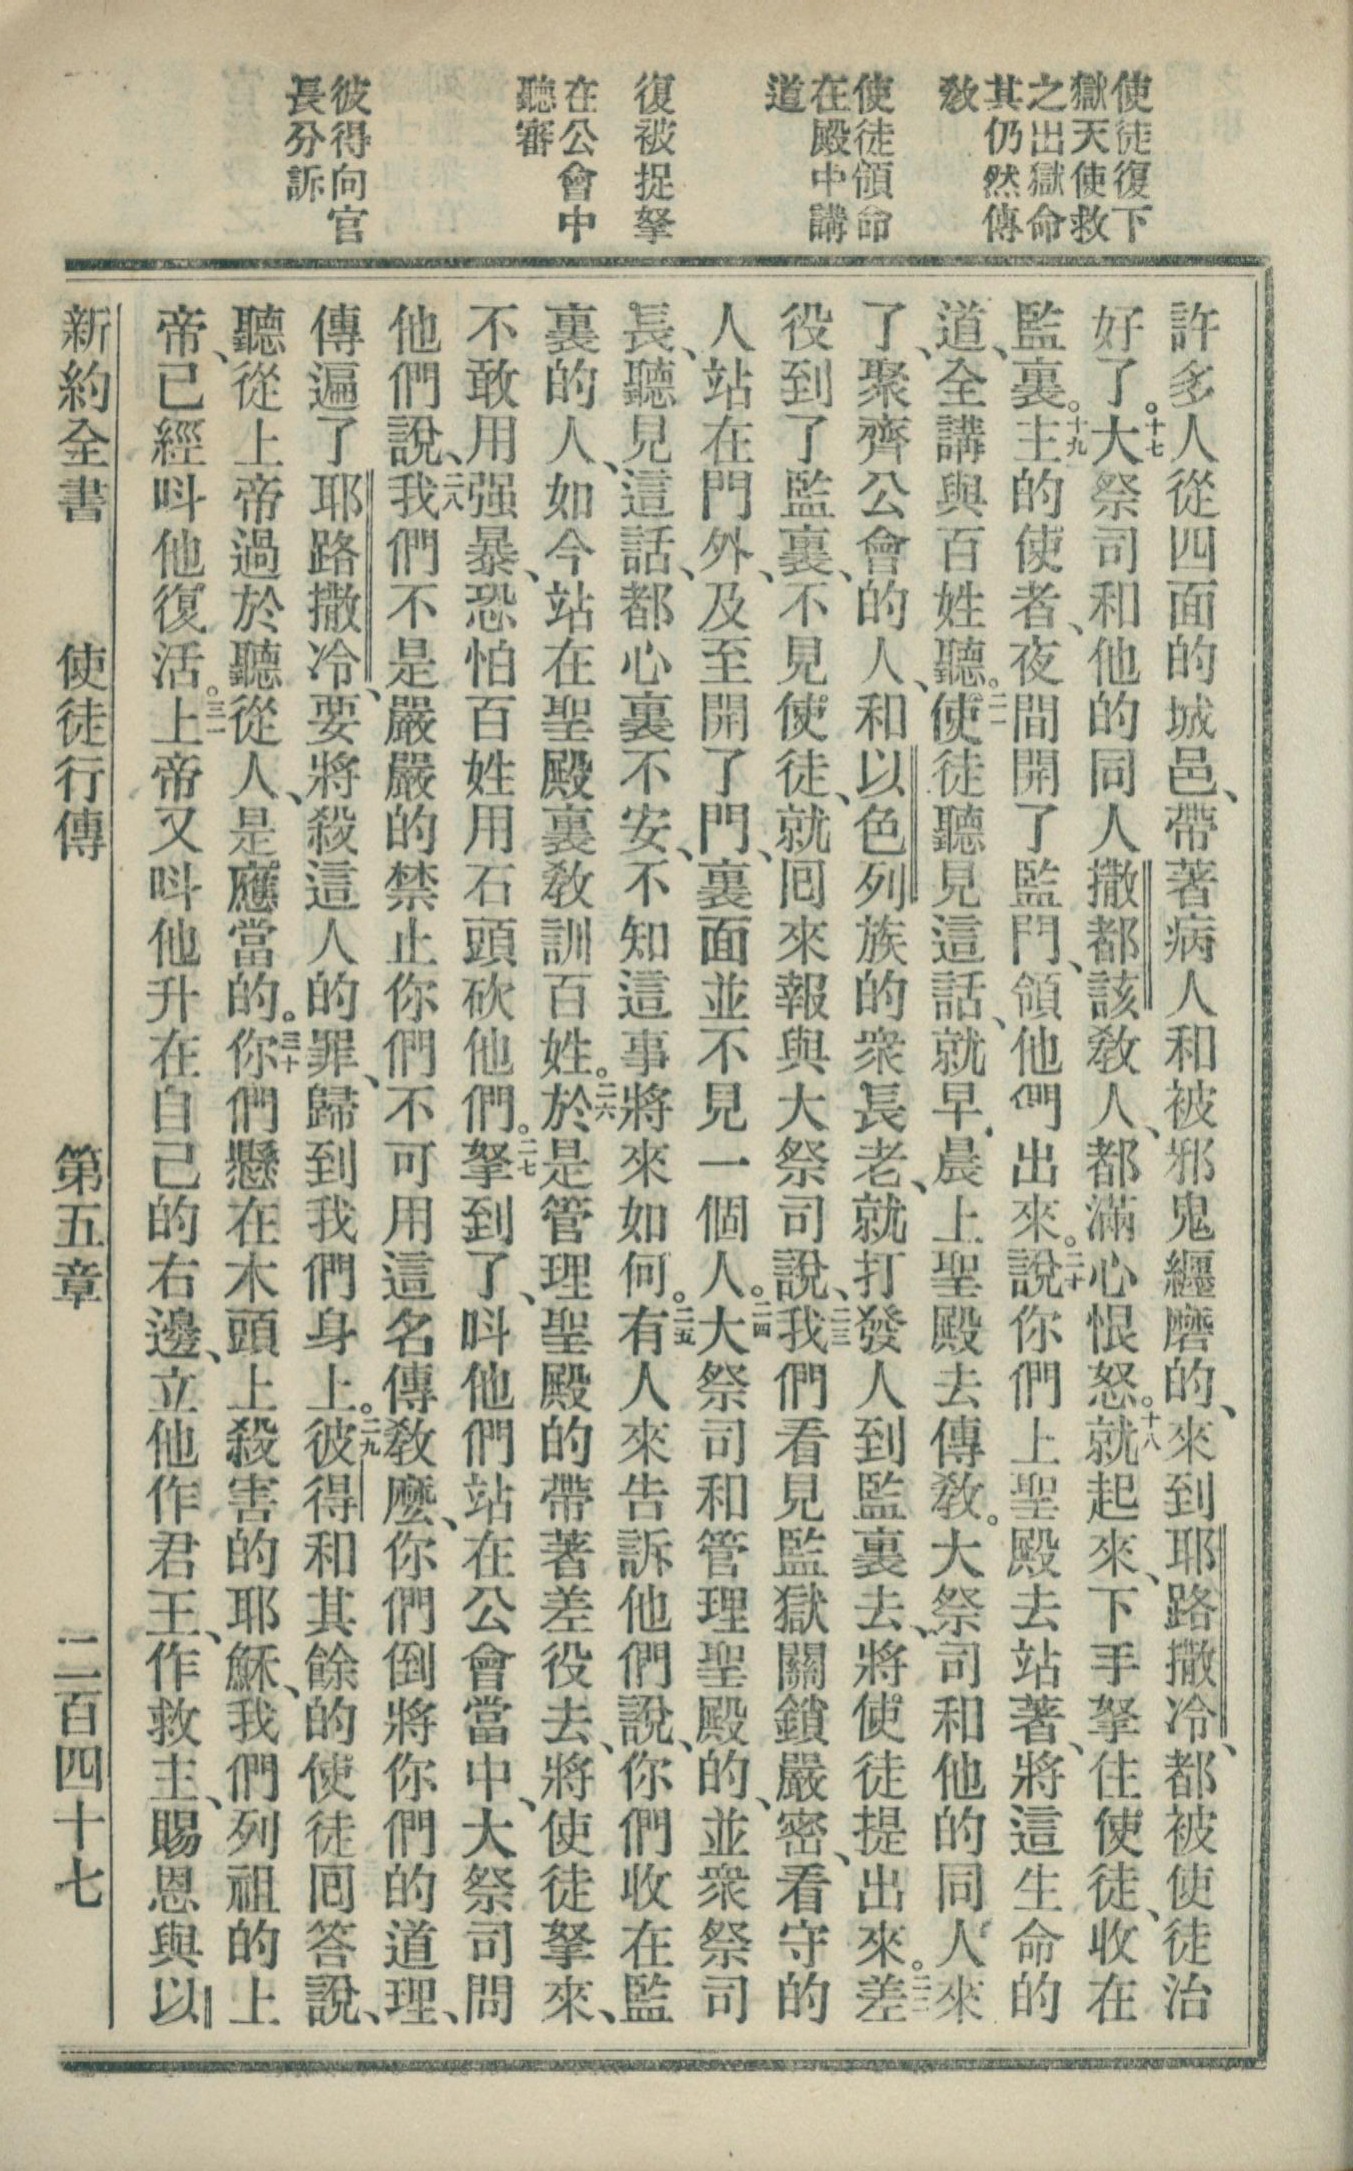 使徒復下
獄天使救
之出獄命
其仍然傳
教
使徒領命
在殿中講
道
復被捉拏
在公會中
聽審
彼得向官
長分訴
許多人從四面的城邑、帶著病人和被邪鬼纏磨的、來到耶路撒冷、都被使徒治
好了。十七大祭司和他的同人撒都該教人、都滿心恨怒。十八就起來、下手拏住使徒、收在
監裏。十九主的使者、夜間開了監門、領他們出來。二十說你們上聖殿去站著、將這生命的
道、全講與百姓聽。二一使徒聽見這話、就早晨上聖殿去傳教。大祭司和他的同人來
了、聚齊公會的人、和以色列族的衆長老、就打發人到監裏去、將使徒提出來。二二差
役到了監裏、不見使徒、就囘來報與大祭司說、二三我們看見監獄關鎖嚴密、看守的
人站在門外、及至開了門、裏面並不見一個人。二四大祭司和管理聖殿的、並衆祭司
長、聽見這話、都心裏不安、不知這事將來如何。二五有人來告訴他們說、你們收在監
裏的人、如今站在聖殿裏教訓百姓。二六於是管理聖殿的帶著差役去、將使徒拏來、
不敢用强暴、恐怕百姓用石頭砍他們。二七拏到了、呌他們站在公會當中、大祭司問
他們說、二八我們不是嚴嚴的禁止你們不可用這名傳教麽、你們倒將你們的道理、
傳遍了耶路撒冷、要將殺這人的罪、歸到我們身上。二九彼得和其餘的使徒囘答說、
聽從上帝過於聽從人、是應當的。三十你們懸在木頭上殺害的耶穌、我們列祖的上
帝、已經呌他復活。三一上帝又呌他升在自己的右邊、立他作君王、作救主、賜恩與以
新約全書 使徒行傳 第五章 二百四十七